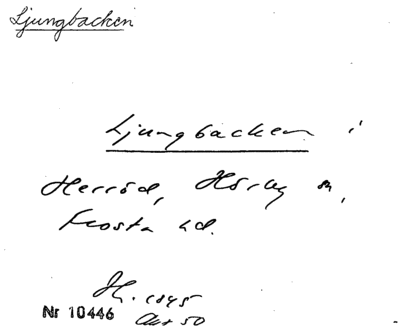 Ljungbacken
Ljungbacken i
Herröd, Hörby sn,
Frosta hd.
Nr 10446